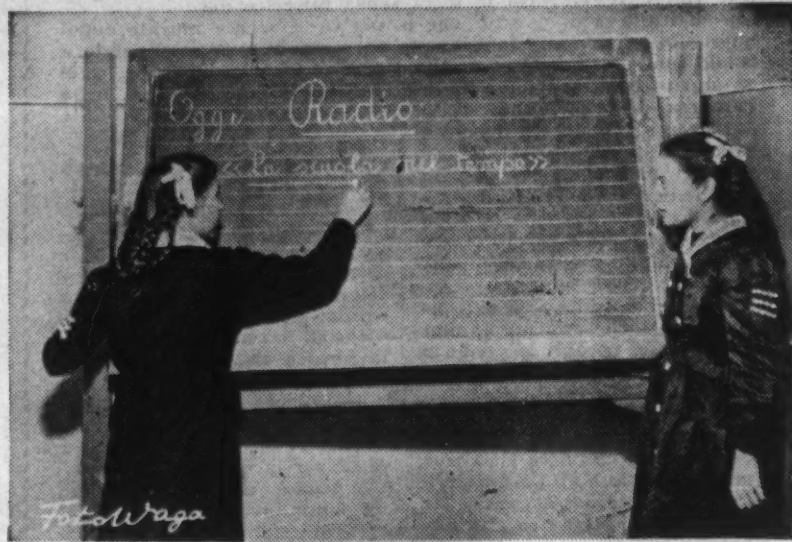 Oggi Radio
«La scuola nel tempo»
FotoWaga